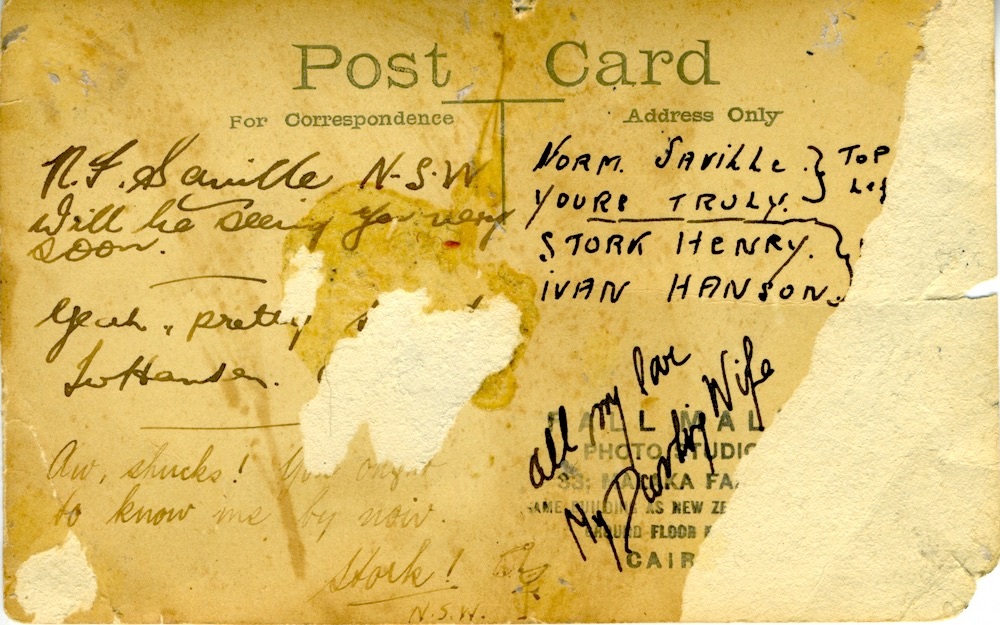 Post Card
For Correspondence
Address Only
N. F. Saville N-S.W
Will be seeing you very
soon.
Yeah, pretty
IvHansen.
Aw, shucks! You ought
to know me by now.
Stork!
N.S.W.
NORM. SAVILLE. } TOP
YOURS TRULY.
STORK HENRY.
IVAN HANSON.
all my love
My Darling Wife
PALL MAL
PHOTO STUDIO
33, MALEKA FA
SAME BUILDING AS NEW ZE
GROUND FLOOR
CAIR